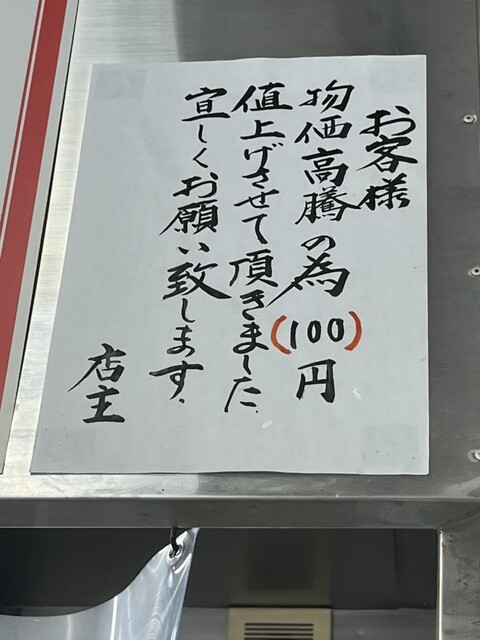 お客様
物価高騰の為(100)円
値上げさせて頂きました
宜しくお願い致します.
店主